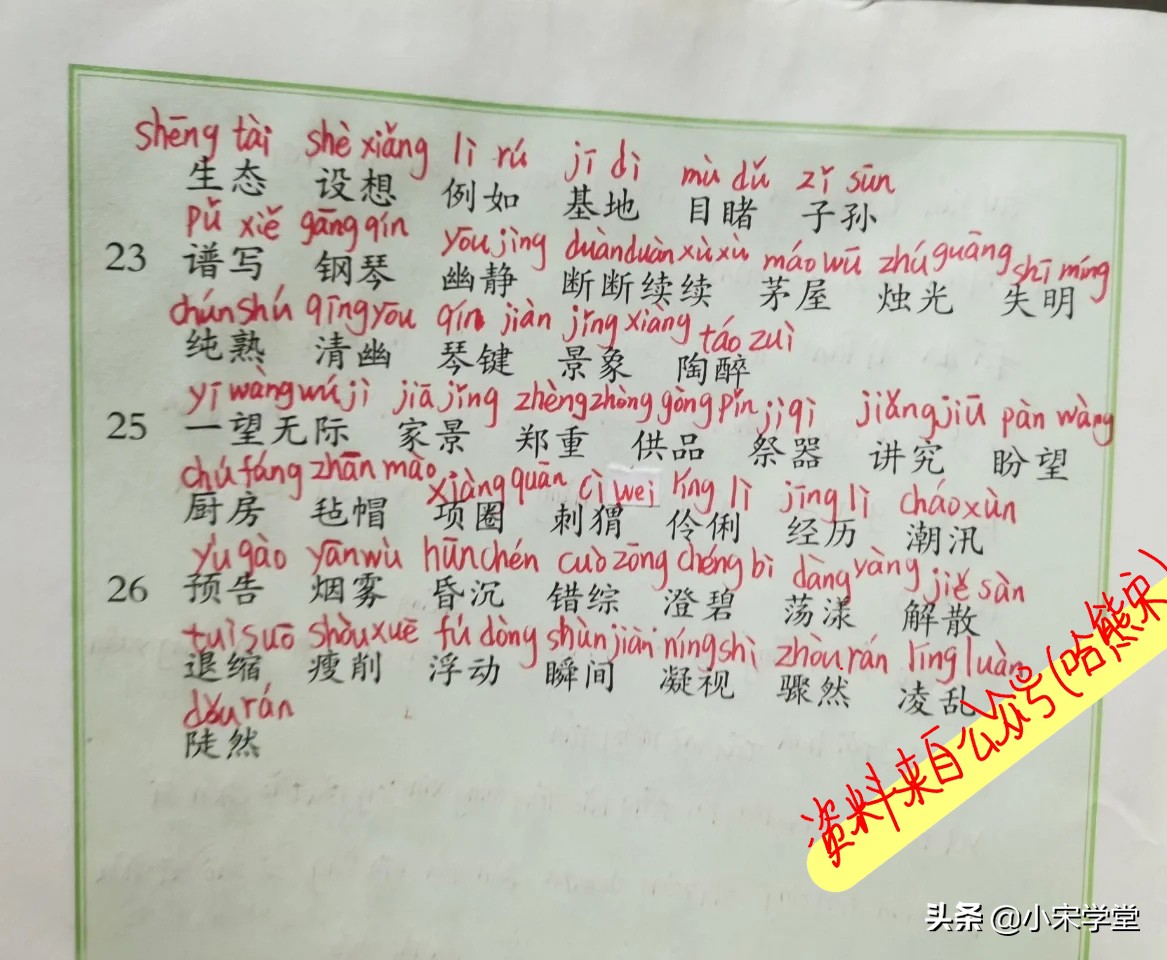 shēng tài shè xiǎng lì rú jī dì mù dǔ zǐ sūn
生态 设想 例如 基地 目睹 子孙
pǔ xiě gāng qín yōu jìng duàn duàn xù xù máo wū zhú guāng shī míng
23 谱写 钢琴 幽静 断断续续 茅屋 烛光 失明
chún shú qīng yōu qín jiàn jǐng xiàng táo zuì
纯熟 清幽 琴键 景象 陶醉
yī wàng wú jì jiā jǐng zhèng zhòng gòng pǐn jì qì jiǎng jiū pàn wàng
25 一望无际 家景 郑重 供品 祭器 讲究 盼望
chú fáng zhān mào xiàng quān cì wei líng lì jīng lì cháo xùn
厨房 毡帽 项圈 刺猬 伶俐 经历 潮汛
yù gào yān wù hūn chén cuò zōng chéng bì dàng yàng jiě sàn
26 预告 烟雾 昏沉 错综 澄碧 荡漾 解散
tuì suō shòu xuē fú dòng shùn jiān níng shì zhòu rán líng luàn
退缩 瘦削 浮动 瞬间 凝视 骤然 凌乱
dǒu rán
陡然
资料来自公众号(哈熊宋)
头条 @小宋学堂